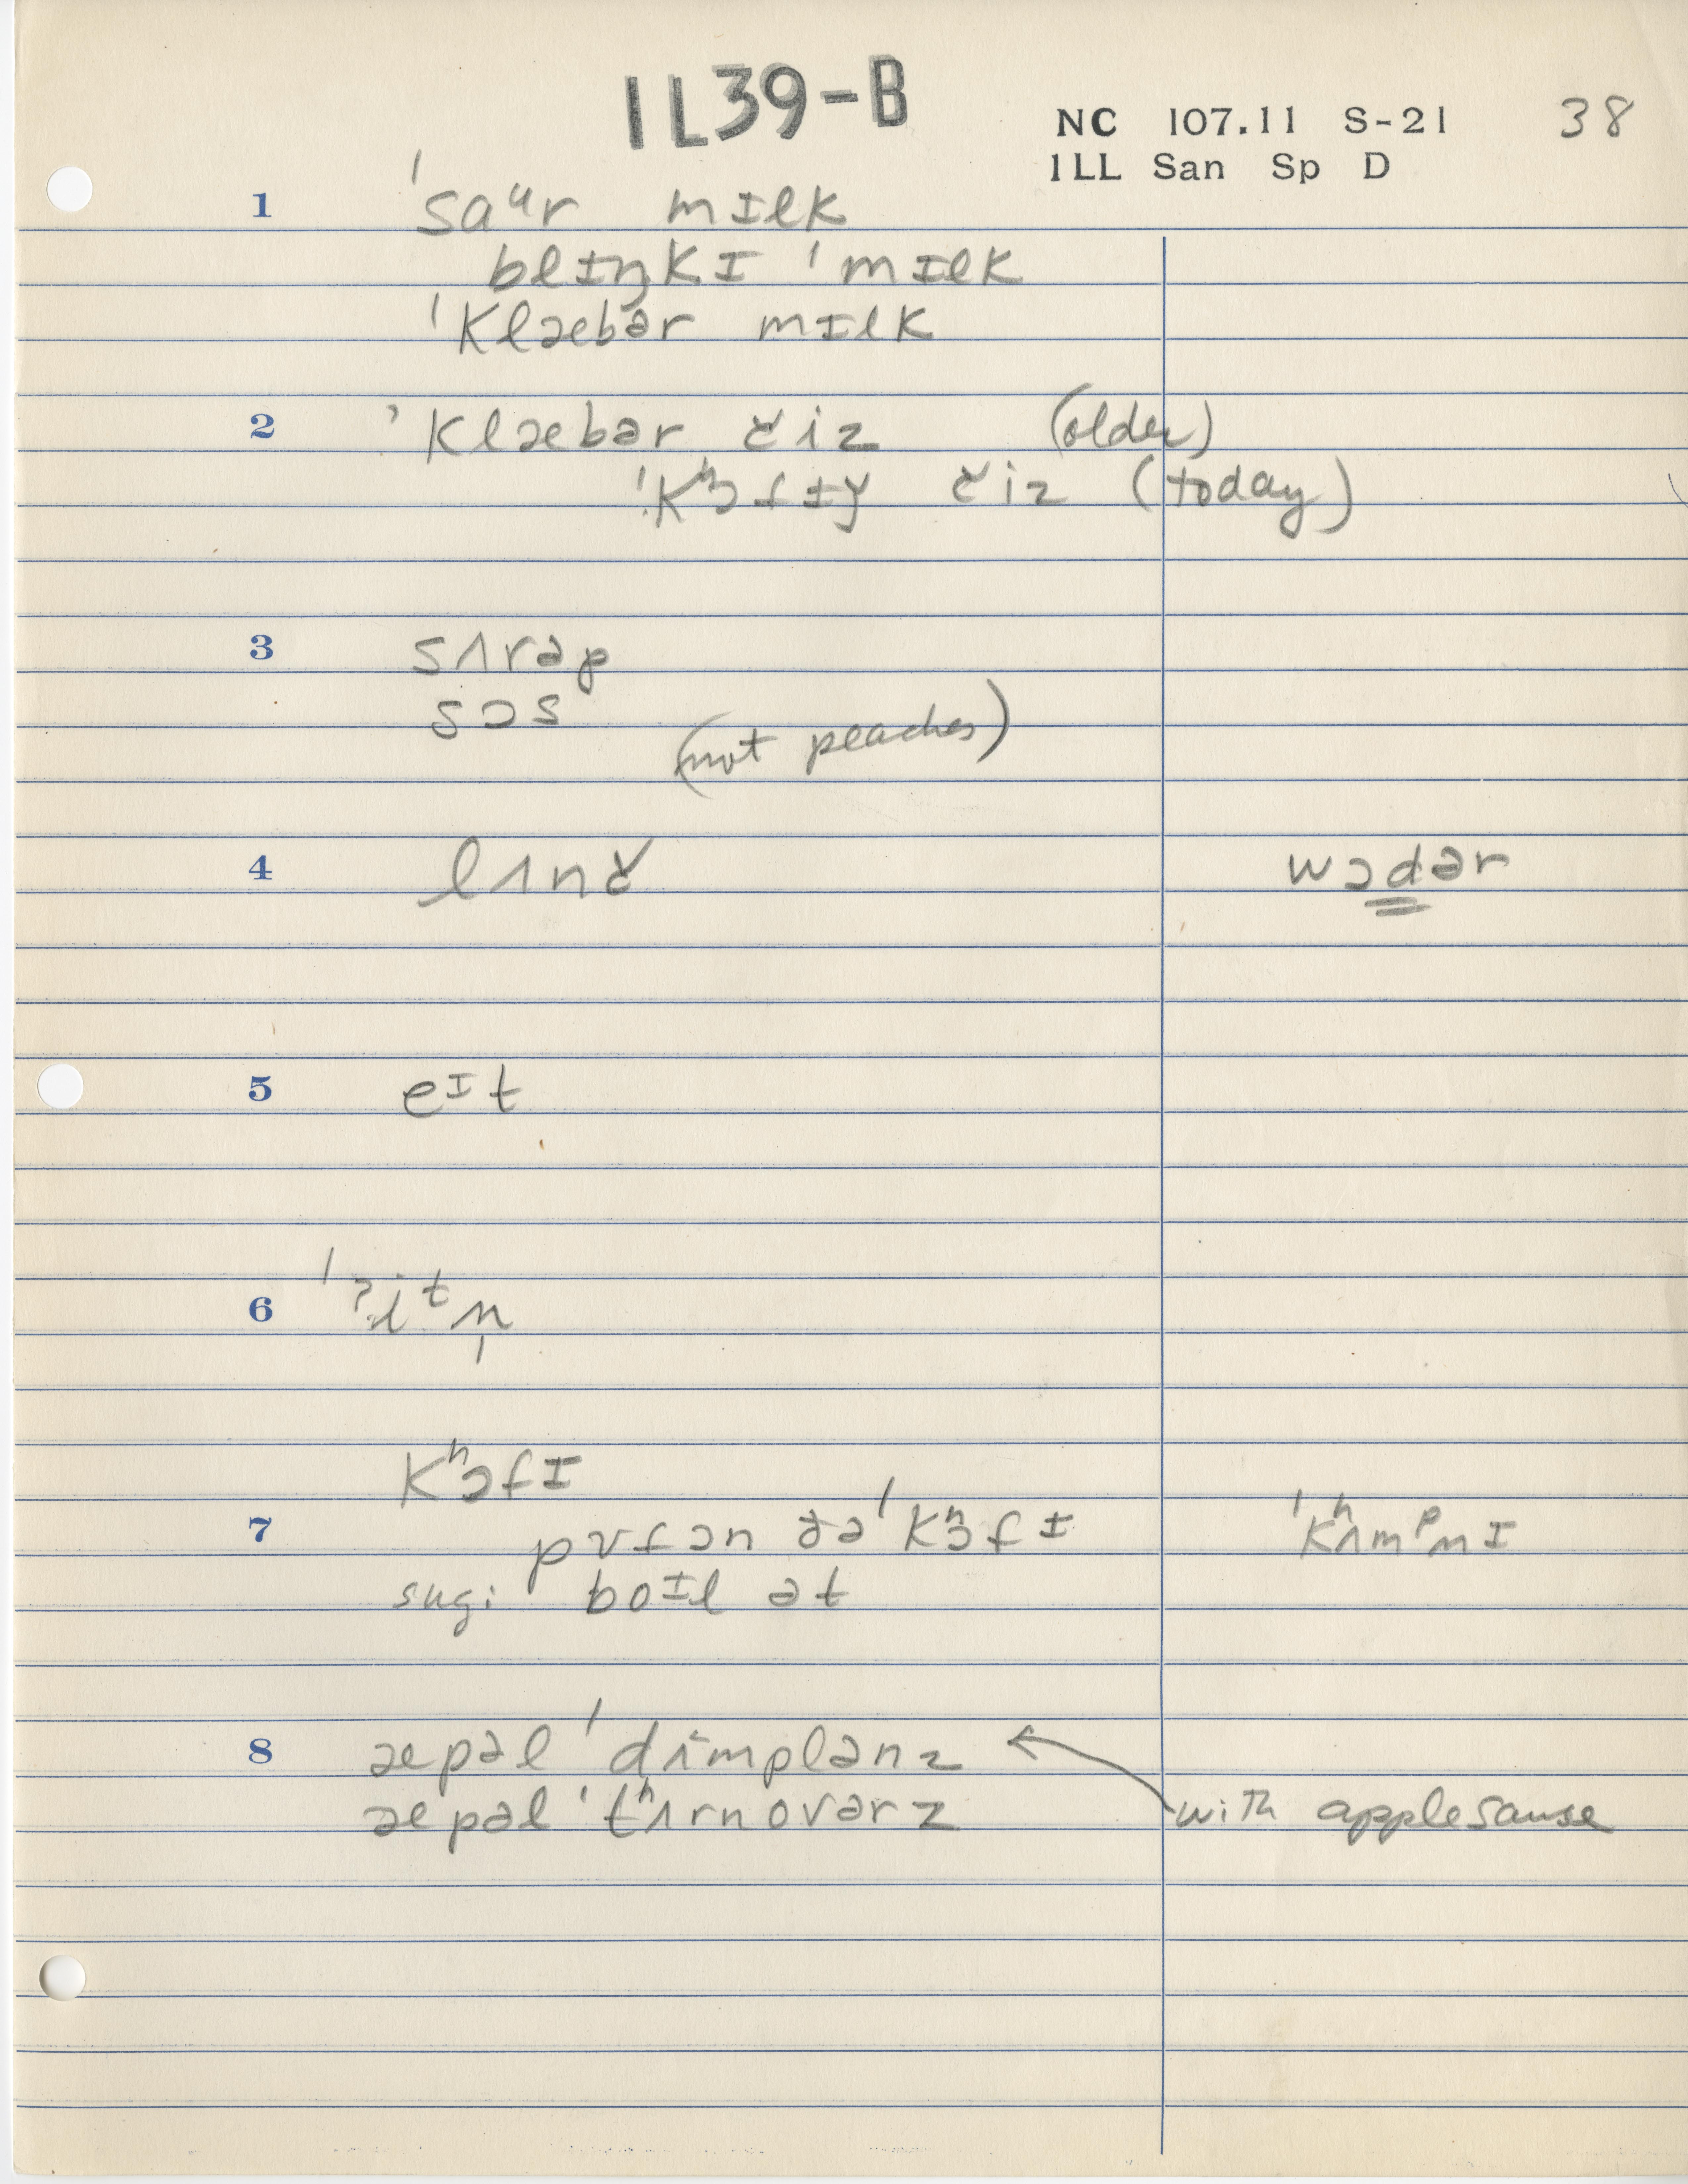 1L39-B
NC 107.11 S-21 38
1LL San Sp D
1 ˈsaᵘr mɪlk
blɪŋkɪ ˈmɪlk
ˈklæbər mɪlk
2 ˈklæbər č̣iz (older)
(today)
3 sʌrəp
sɔs
(not peaches)
4 lʌnč wɔdər
5 eᴵt
6 ˈʔiᵗn̩
kʰɔfɪ
7 ðə ˈkʰɔfɪ ˈkʰʌmᵖnɪ
sug: boᴵl ət
8 æpəl ˈdʌmplənz
æpəl ˈtʰʌrnovərz with applesause